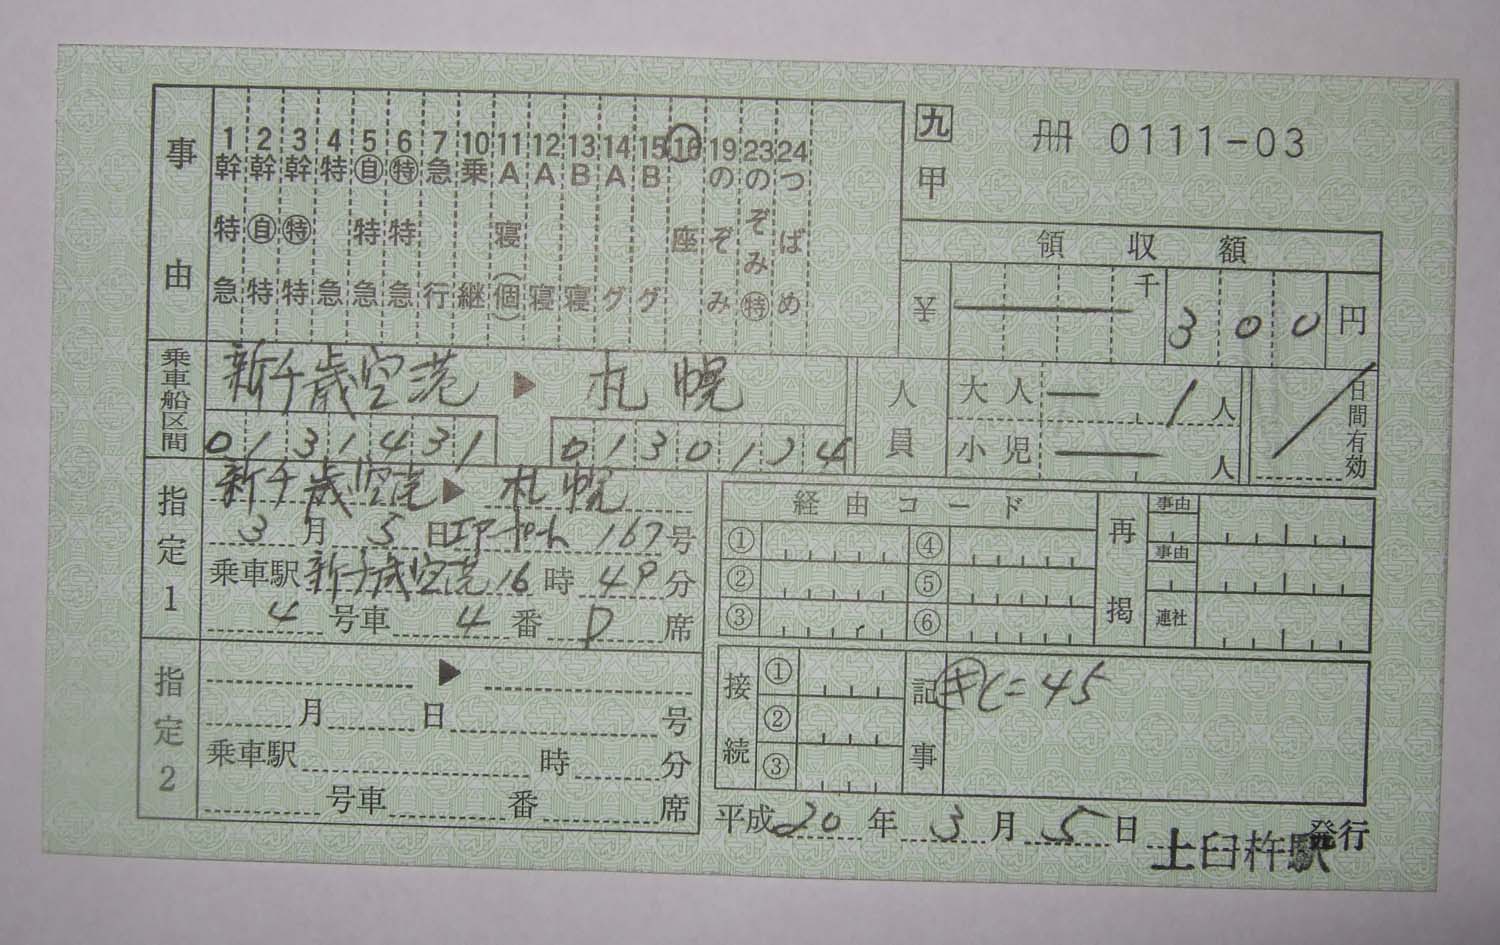 九 甲 冊 0111-03
事由
1 幹特急
2 幹自特
3 幹特特
4 特急
5 自特急
6 特特急
7 急行
10 乗継
11 A寝(個)
12 A寝
13 B寝
14 Aグ
15 Bグ
16 座
19 のぞみ
23 のぞみ特
24 つばめ
領収額
¥ 千 300 円
乗車船区間 新千歳空港 ▶ 札幌
0131431 0130124
人員 大人 1人
小児 人
日間有効
指定1 新千歳空港 ▶ 札幌
3月5日エアポート 167号
乗車駅 新千歳空港 16時49分
4号車 4番 D席
指定2 ▶
月 日 号
乗車駅 時 分
号車 番 席
経由コード
① ④
② ⑤
③ ⑥
再掲 事由
事由
連社
接続 ① ② ③
記事 =45
平成20年3月5日 上臼杵駅 発行